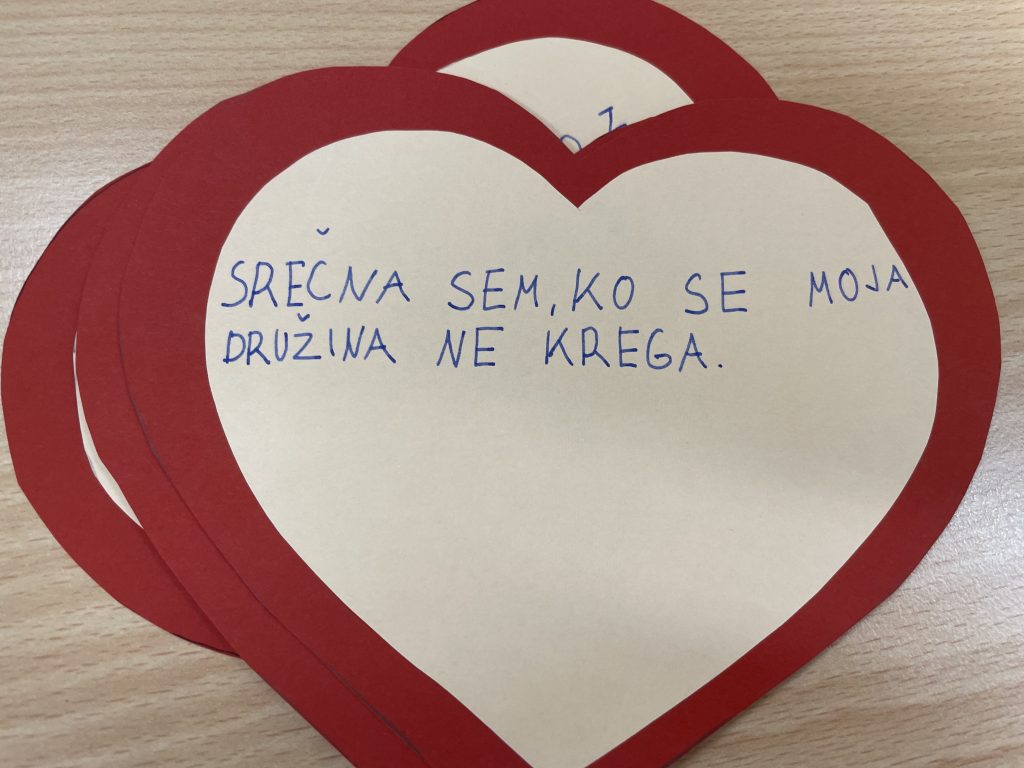 SREČNA SEM, KO SE MOJA
DRUŽINA NE KREGA.